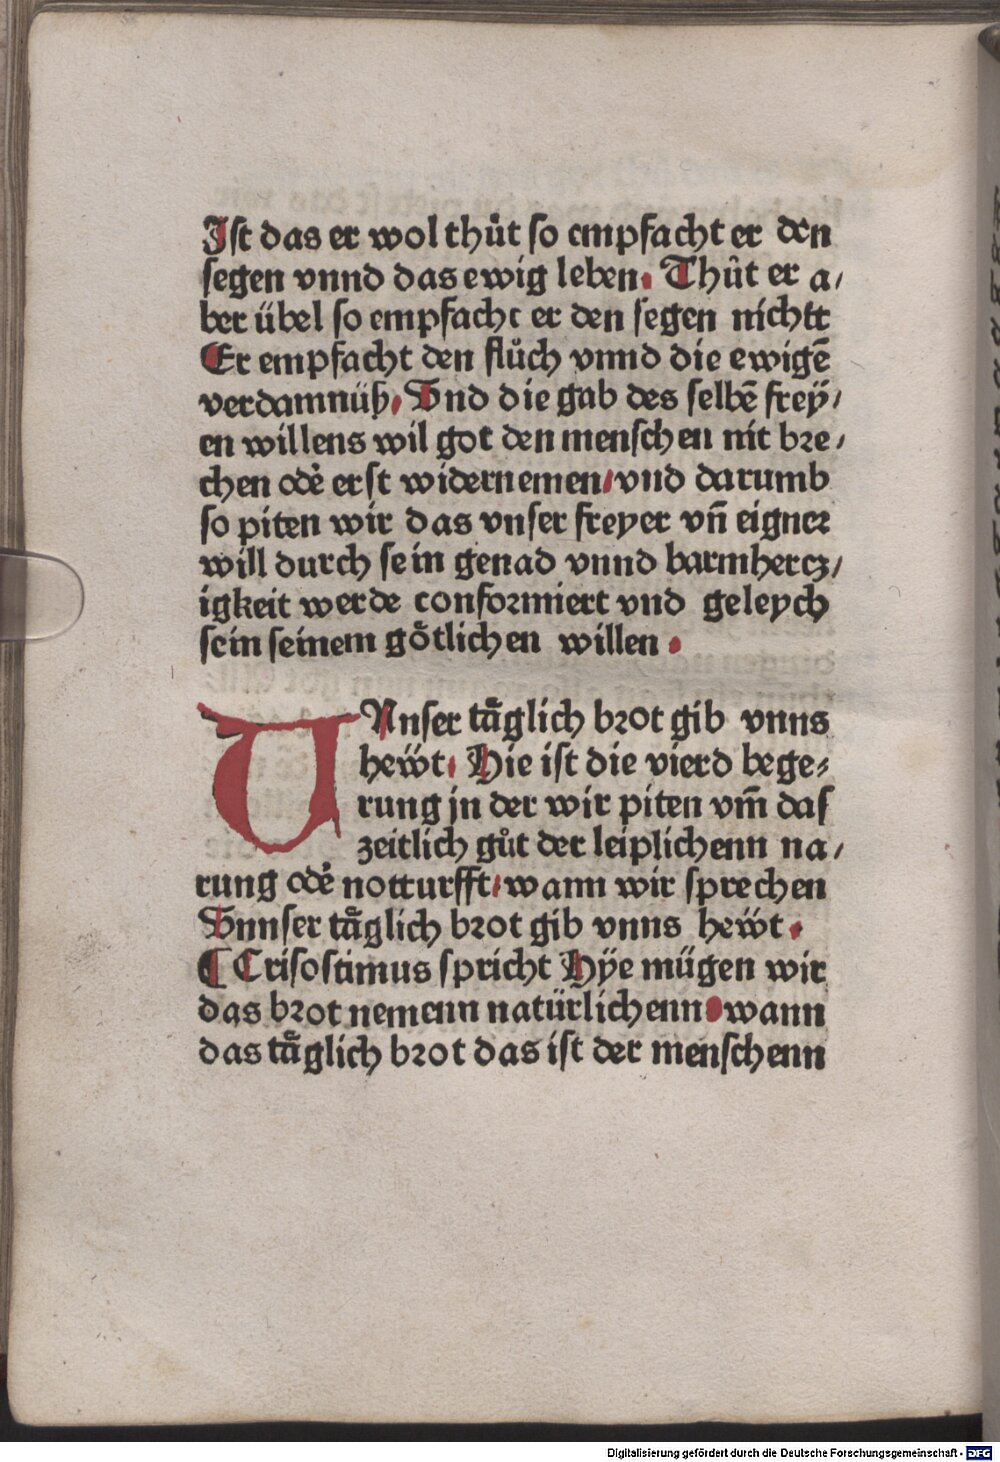 Ist das er wol thůt so empfacht er den
segen vnnd das ewig leben. Thůt er a/
ber übel so empfacht er den segen nichtt
Er empfacht den flůch vnnd die ewigē
verdamnüß, Vnd die gab des selbē freÿ/
en willens wil got den menschen nit bre/
chen odė erst widernemen/vnd darumb
so piten wir das vnser freyer vn̄ eigner
will durch sein genad vnnd barmhercz/
igkeit werde conformiert vnd geleych
sein seinem götlichen willen.
UVnser tåglich brot gib vnns
heẅt. Hie ist die vierd bege/
rung jn der wir piten vm̄ das
zeitlich gůt der leiplichenn na/
rung odė notturfft/wann wir sprechen
Vnnser tåglich brot gib vnns heẅt.
¶ Crisostimus spricht Hÿe mügen wir
das brot nemenn natürlichenn.wann
das tåglich brot das ist der menschenn
Digitalisierung gefördert durch die Deutsche Forschungsgemeinschaft - DFG